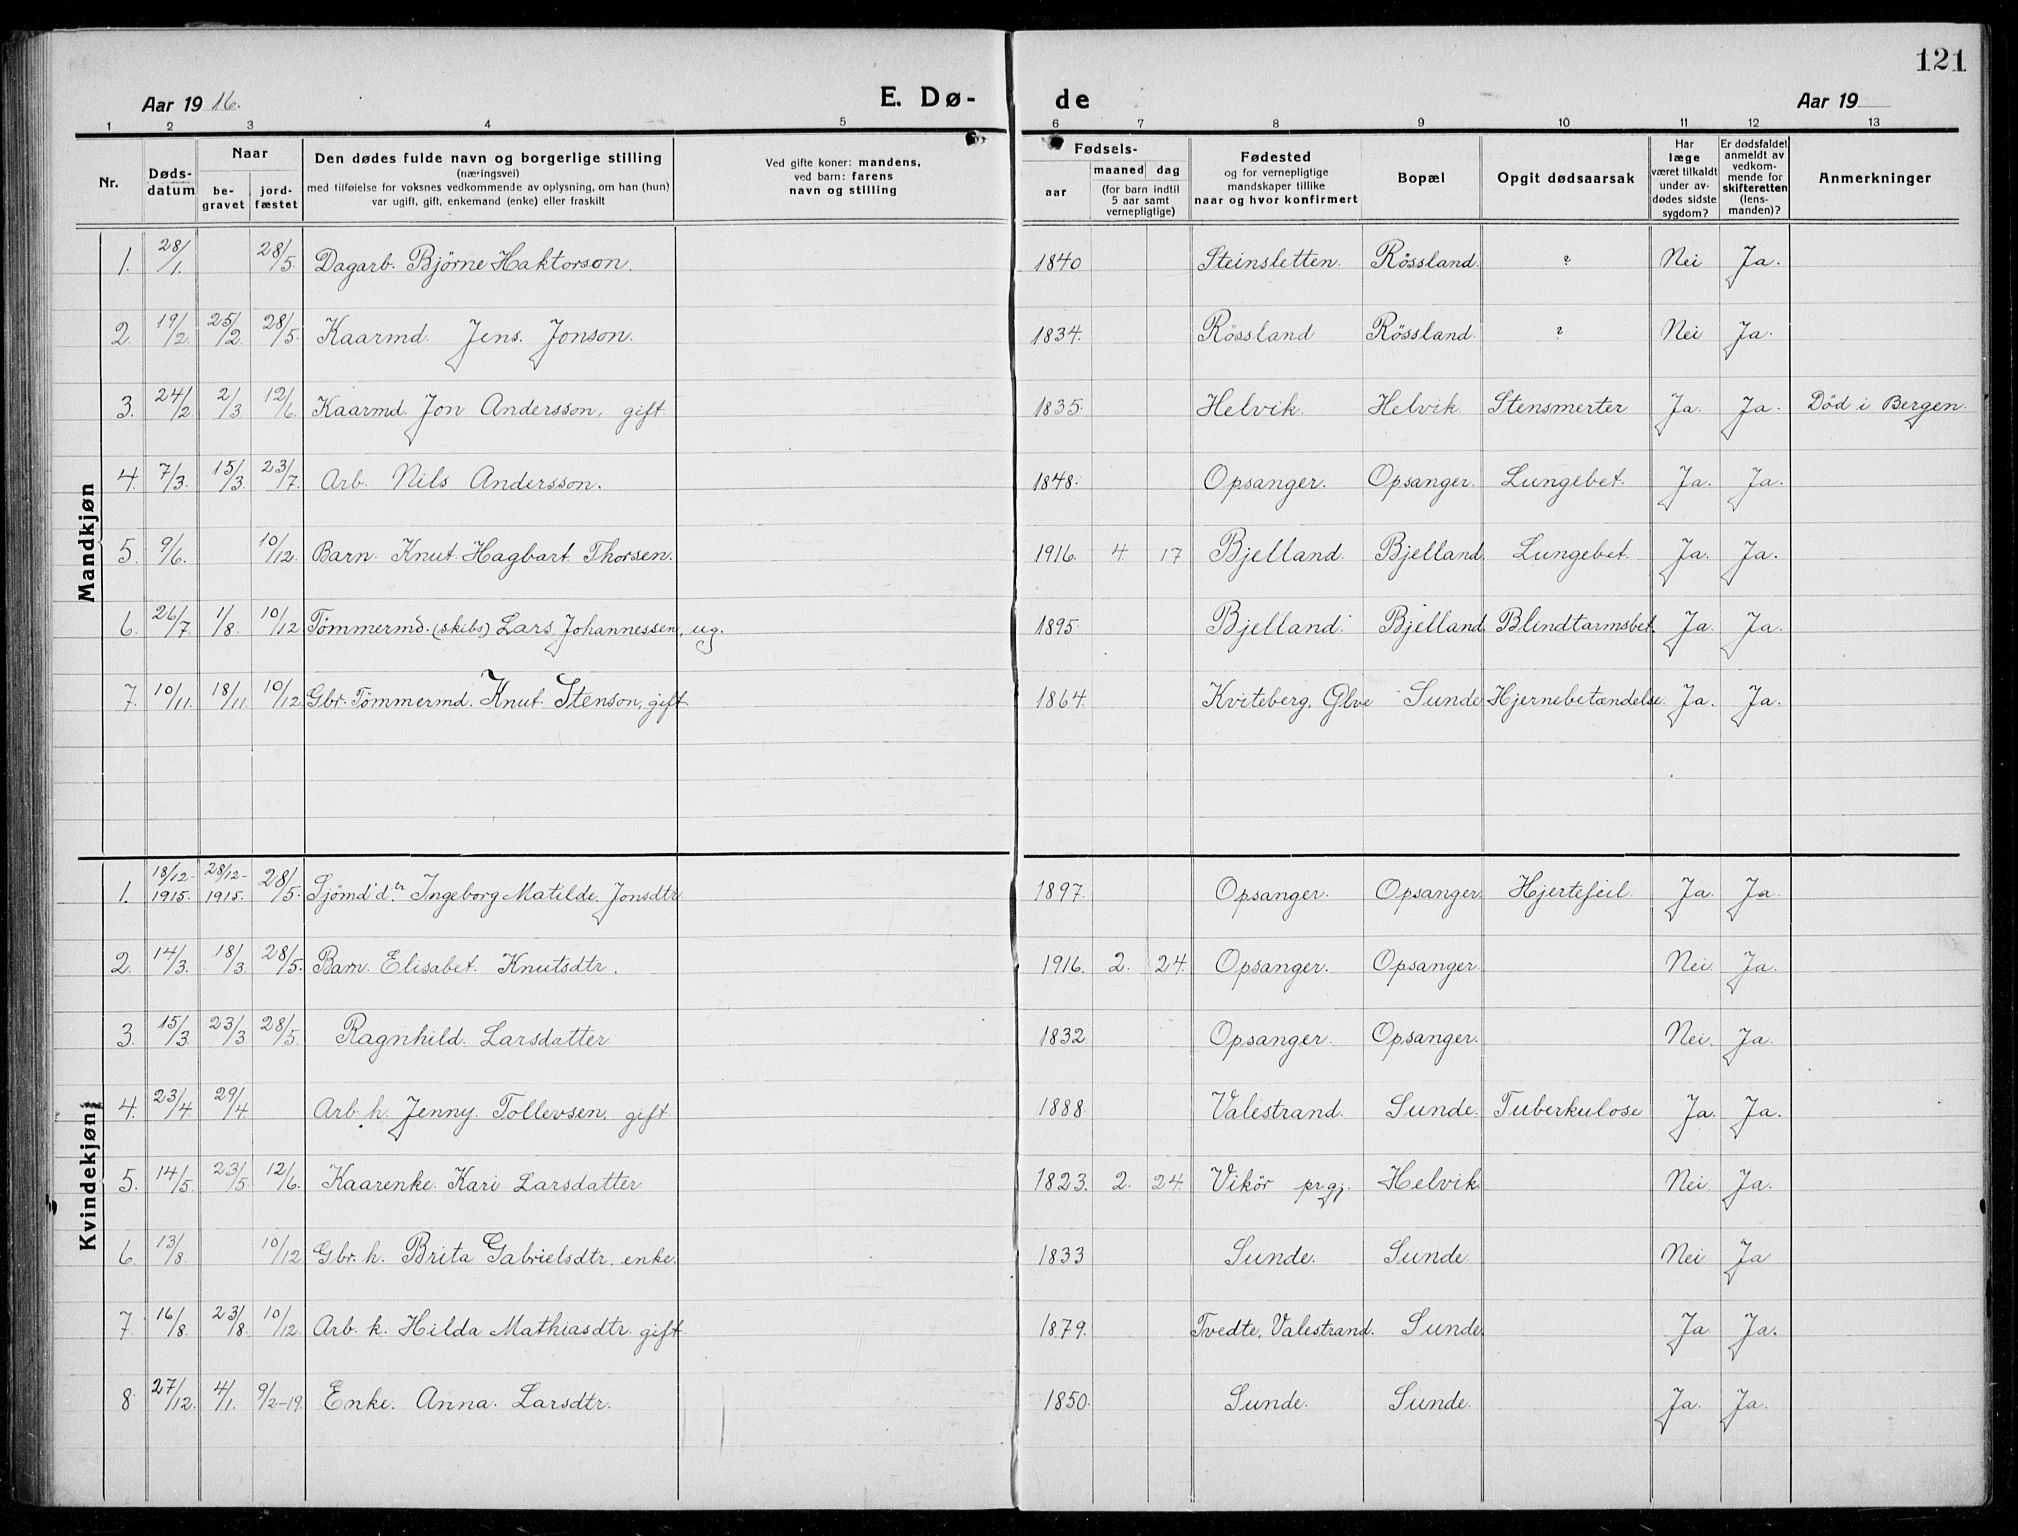 121
Aar 1916. E. Dø- de Aar 19
1 2 3 4 5 6 7 8 9 10 11 12 13
Nr. Døds-datum Naar be-gravet jord-fæstet Den dødes fulde navn og borgerlige stilling (næringsvei) med tilføielse for voksnes vedkommende av oplysning, om han (hun) var ugift, gift, enkemand (enke) eller fraskilt Ved gifte koner: mandens, ved barn: farens navn og stilling Fødsels- aar maaned dag (for barn indtil 5 aar samt vernepligtige) Fødested og for vernepligtige mandskaper tillike naar og hvor konfirmert Bopæl Opgit dødsaarsak Har læge været tilkaldt under av-dødes sidste sygdom? Er dødsfaldet anmeldt av vedkom-mende for skifteretten (lens-manden)? Anmerkninger
Mandkjøn
1. 28/1. 28/5. Dagarb. Bjørne Haktorson. 1840 Steinsletten. Røssland. ? Nei Ja.
2. 19/2. 25/2. 28/5. Kaarmd. Jens. Jonson. 1834. Røssland Røssland. ? Nei Ja.
3. 24/2. 2/3 12/6. Kaarmd. Jon Andersson, gift 1835. Helvik. Helvik. Stensmerter Ja. Ja. Død i Bergen.
4. 7/3. 15/3. 23/7. Arb. Nils Andersson. 1848. Opsanger. Opsanger. Lungebet. Ja. Ja.
5. 9/6. 10/12. Barn. Knut Hagbart Thorsen. 1916. 4. 17 Bjelland. Bjelland. Lungebet. Ja. Ja.
6. 26/7. 1/8. 10/12 Tømmermd. (skibs) Lars Johannessen, ug. 1895. Bjelland. Bjelland. Blindtarmsbet. Ja. Ja.
7. 10/11. 18/11. 10/12 Gbr. Tømmermd. Knut. Stenson, gift. 1864. Kviteberg, Ølve Sunde Hjernebetændelse. Ja. Ja.
Kvindekjøn
1. 18/12-1915. 28/12-1915. 28/5. Sjømd'dtr Ingeborg Matilde Jonsdtr 1897. Opsanger. Opsanger. Hjertefeil. Ja. Ja.
2. 14/3. 18/3 28/5. Barn. Elisabet. Knutsdtr. 1916. 2. 24. Opsanger. Opsanger. Nei. Ja.
3. 15/3. 23/3. 28/5. Ragnhild. Larsdatter 1832 Opsanger. Opsanger. Nei. Ja.
4. 23/4 29/4 Arb. h. Jenny. Tollevsen, gift 1888 Valestrand. Sunde. Tuberkulose Ja. Ja.
5. 14/5. 23/5. 12/6. Kaarenke. Kari Larsdatter 1823. 2. 24. Vikør prgj. Helvik. Nei Ja.
6. 13/8. 10/12 Gbr. h. Brita Gabrielsdtr. enke. 1833 Sunde. Sunde. Nei Ja
7. 16/8. 23/8. 10/12. Arb. k. Hilda Mathiasdtr. gift 1879. Tvedte, Valestrand. Sunde. Ja Ja.
8 27/12. 4/1. 9/2-19. Enke. Anna. Larsdtr. 1850. Sunde. Sunde. Ja. Ja.